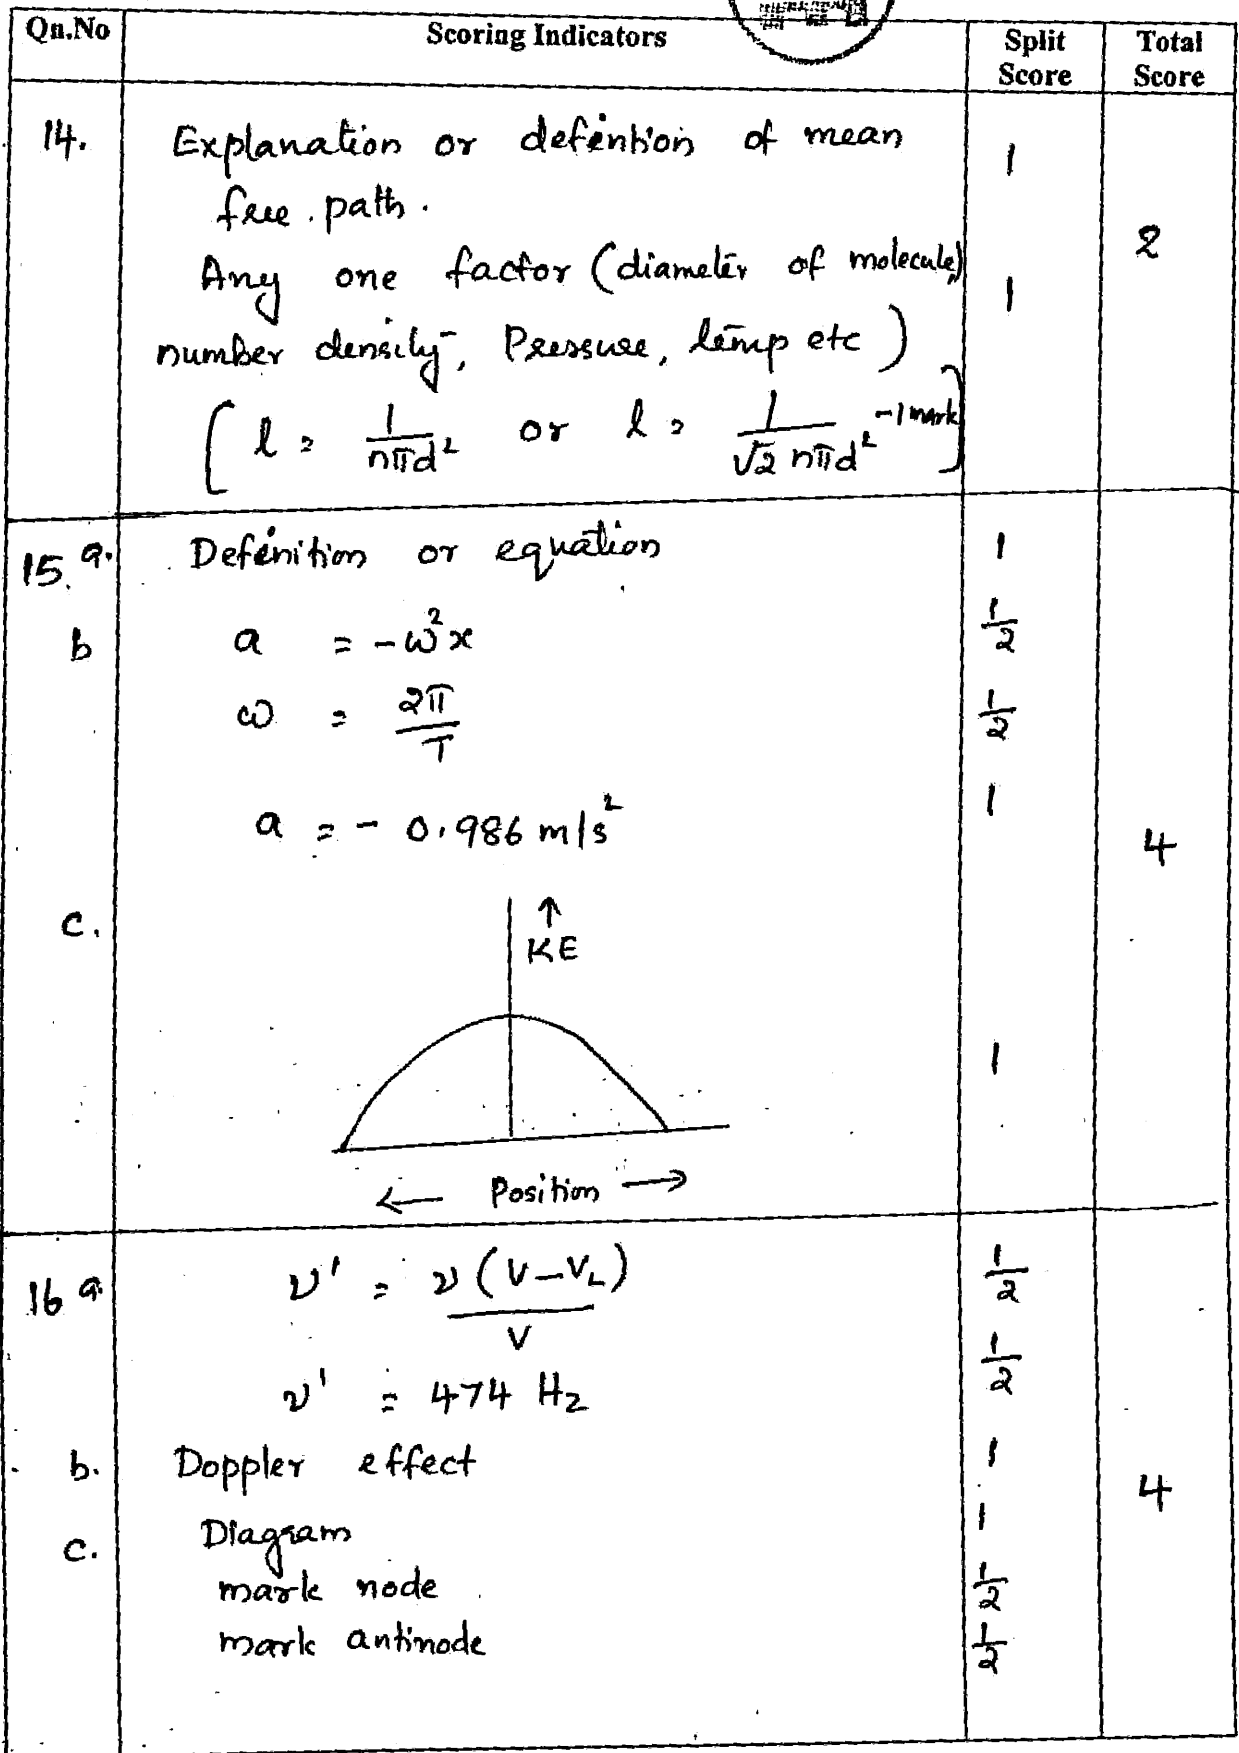 Qn.No Scoring Indicators Split Score Total Score
14. Explanation or defintion of mean 1
free path. 2
Any one factor (diameter of molecule, 1
number density, Pressure, temp etc)
[l = 1/nπd² or l = 1/√2 nπd² - 1 mark]
15. a. Definition or equation 1
b a = -ω²x 1/2
ω = 2π/T 1/2
a = - 0.986 m/s² 1
4
c. ↑
KE
1
← Position →
16 a. ν' = ν (V-V_L)/V 1/2
ν' = 474 Hz 1/2
b. Doppler effect 1
4
c. Diagram 1
mark node 1/2
mark antinode 1/2